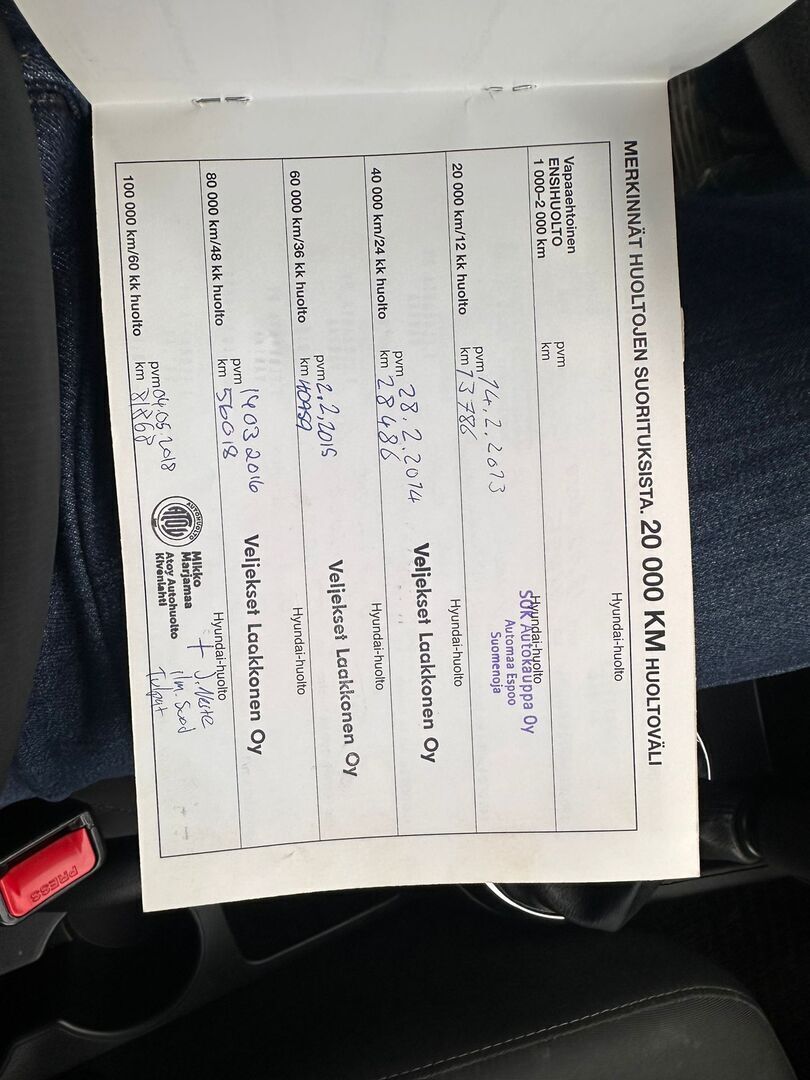 MERKINNÄT HUOLTOJEN SUORITUKSISTA. 20 000 KM HUOLTOVÄLI
Vapaaehtoinen
ENSIHUOLTO
1 000–2 000 km
pvm
km
Hyundai-huolto
20 000 km/12 kk huolto
pvm 14.2.2013
km 13786
Hyundai-huolto
SOK Autokauppa Oy
Automaa Espoo
Suomenoja
40 000 km/24 kk huolto
pvm 28.2.2014
km 28486
Hyundai-huolto
Veljekset Laakkonen Oy
60 000 km/36 kk huolto
pvm 2.2.2015
km
Hyundai-huolto
Veljekset Laakkonen Oy
80 000 km/48 kk huolto
pvm 14 03 2016
km 56018
Hyundai-huolto
Veljekset Laakkonen Oy
100 000 km/60 kk huolto
pvm 04.05.2018
km 81868
Hyundai-huolto
AUTOHUOLTO
ATOY
Mikko
Marjamaa
Atoy Autohuolto
Kivenlahti
+ J.Neste
ilm. Suod
Tulpat
PRESS